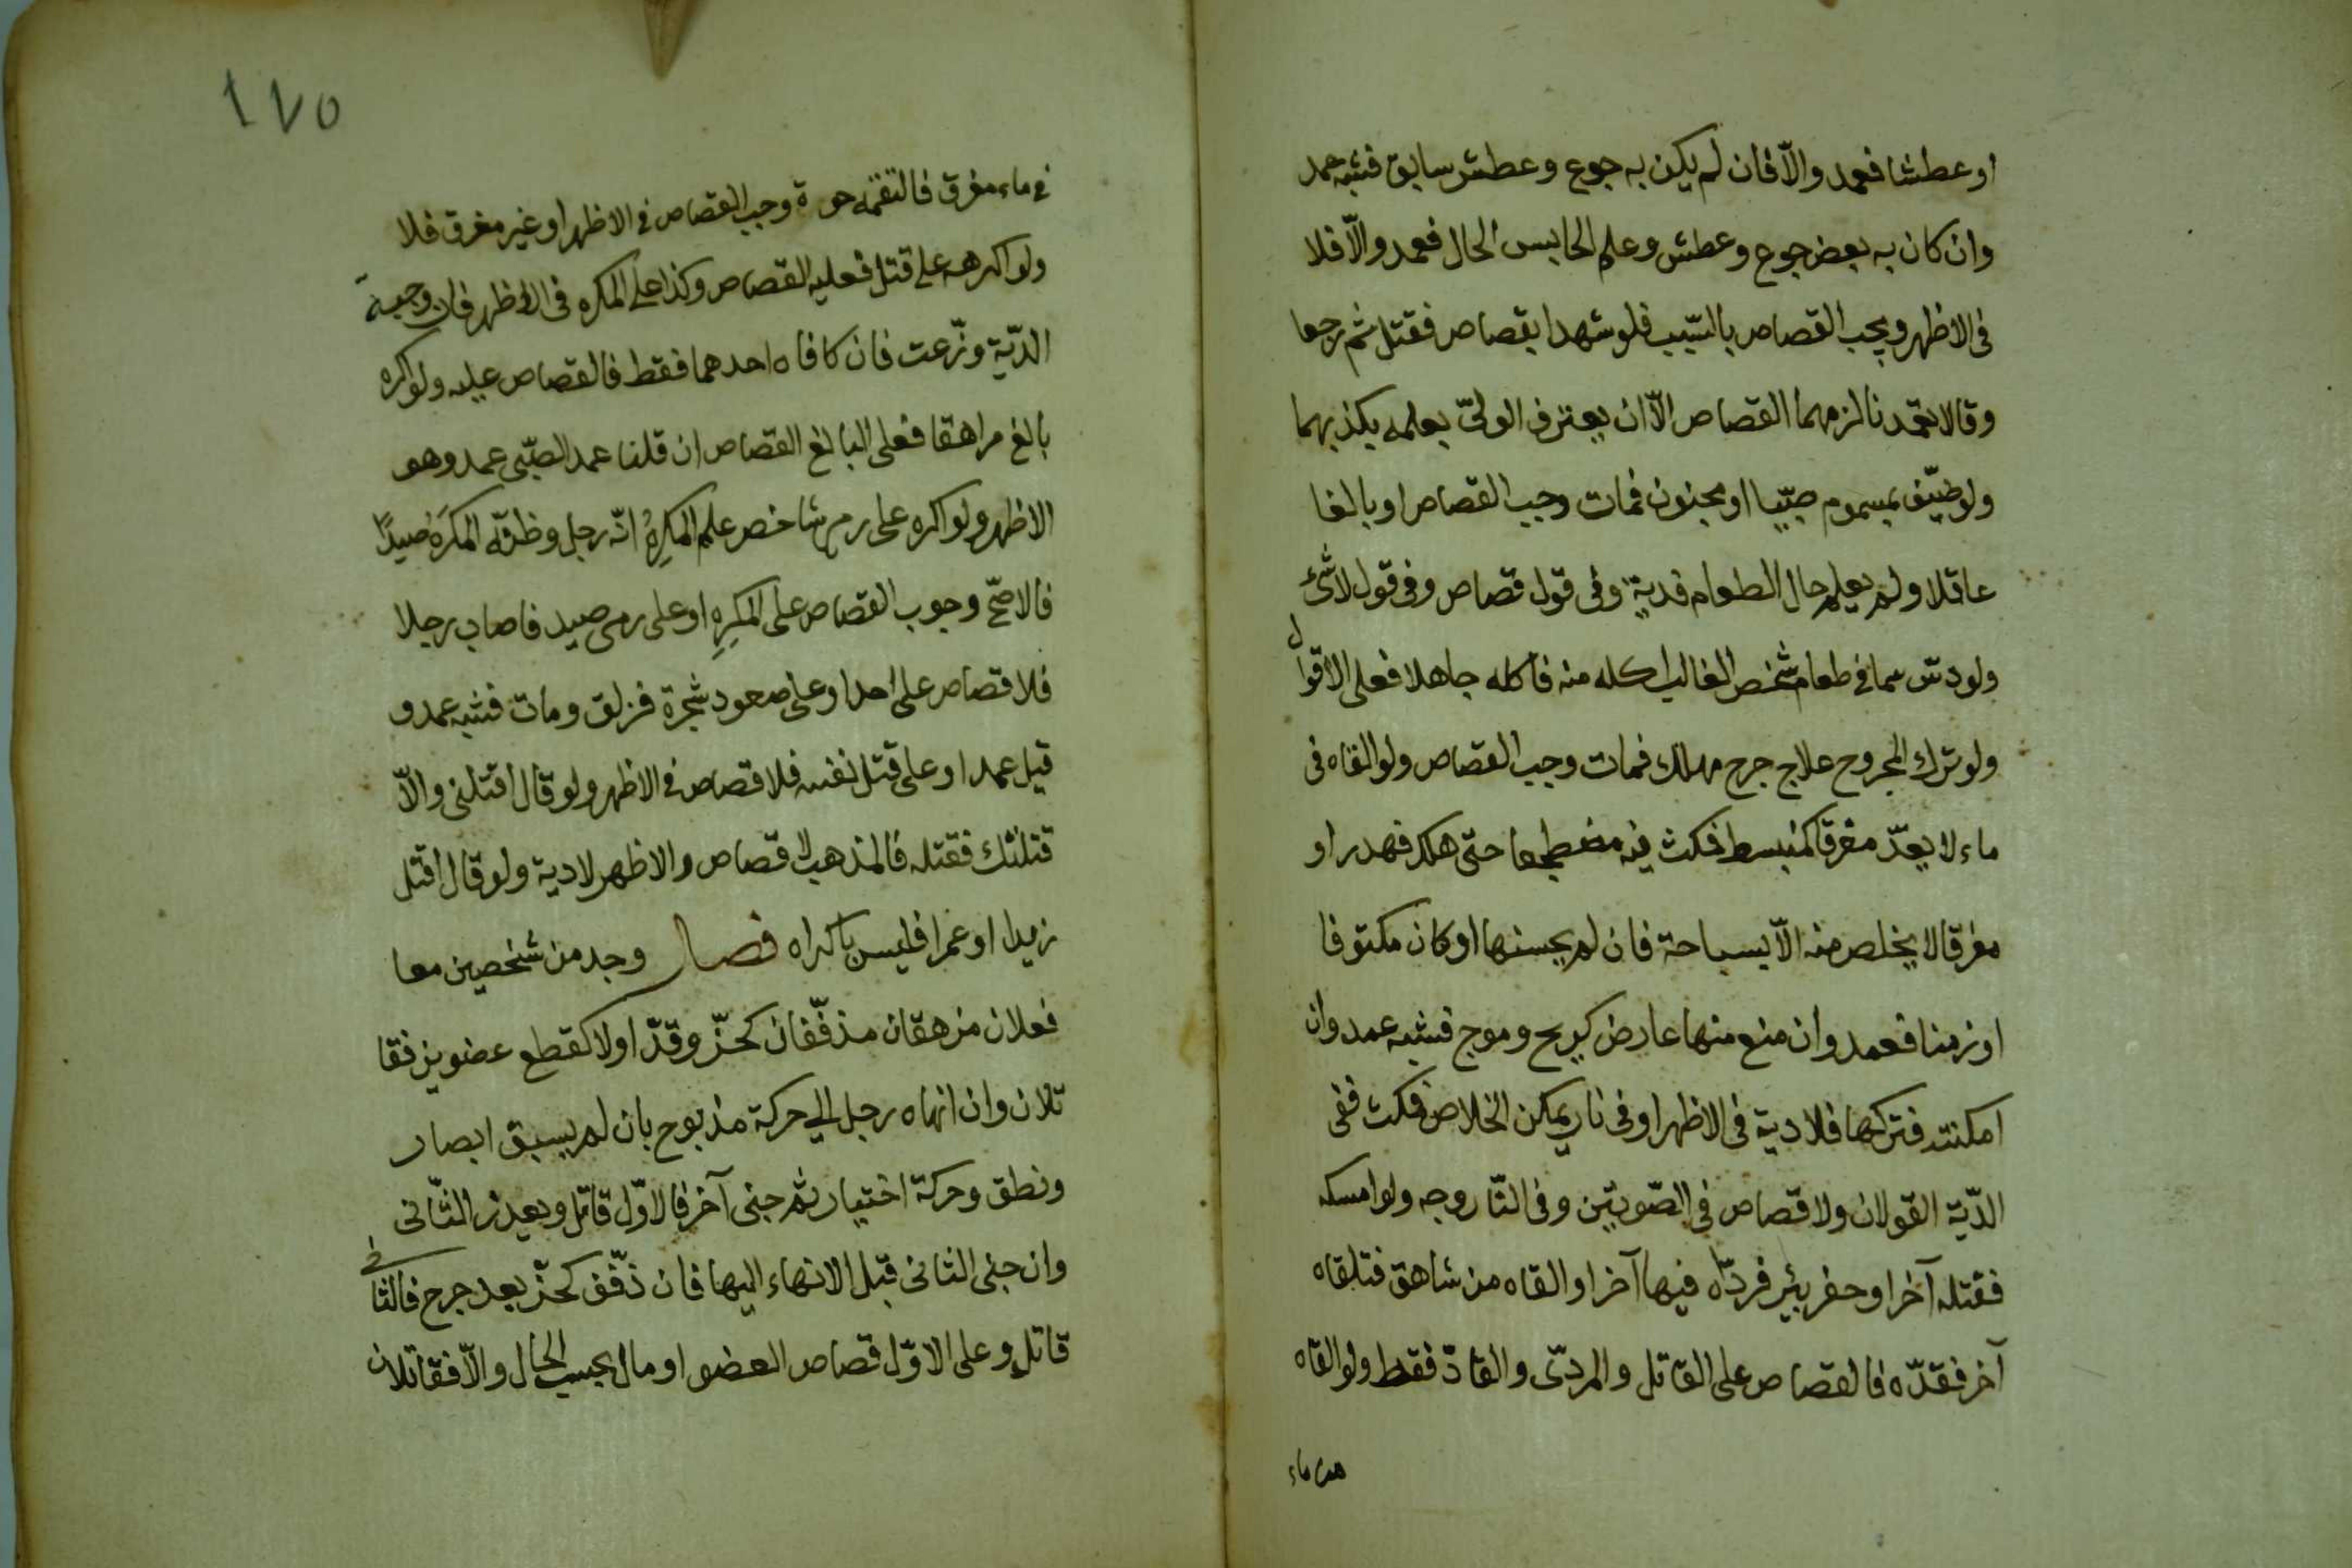 او عطشا فعمد والّا فان لم يكن به جوع وعطش سابق فشبه عمد
وان كان به بعض جوع وعطش وعلم الحابس الحال فعمد والّا فلا
فى الاظهر ويجب القصاص بالسّبب فلو شهدا بقصاص فقتل ثم رجعا
وقالا تعمّدنا لزمهما القصاص الّا ان يعترف الولىّ بعلمه بكذبهما
ولو ضيّف بمسموم صبّيا او مجنون فمات وجب القصاص او بالغا
عاقلا ولم يعلم حال الطعام فدية وفى قول قصاص وفى قول لا شئ
ولو دسّ سما فى طعام شخص الغالب اكله منه فاكله جاهلا فعلى الاقوال
ولو ترك المجروح علاج جرح مهلك فمات وجب القصاص ولو القاه فى
ماء لا يعدّ مغرقا كمنبسط فمكث فيه مضطجعا حتّى هلك فهدر او
مغرقا لا يخلص منه الّا بسباحة فان لم يحسنها او كان مكتوفا
او زمنا فعمد وان منع منها عارض كريح وموج فشبه عمد وان
امكنته فتركها فلا دية فى الاظهر او فى نار يمكن الخلاص فمكث ففى
الدّية القولان ولا قصاص فى الصّورتين وفى النّار وجه ولو امسكه
فقتله آخر او حفر بئر فردّاه فيها آخر او القاه من شاهق فتلقاه
آخر فقدّه فالقصاص على القاتل والمردّى والقادّ فقط ولو القاه
فى ماء
١٧٥
فى ماء مغرق فالتقمه حوة وجب القصاص فى الاظهر او غير مغرق فلا
ولو اكرهه على قتل فعليه القصاص وكذا على المكره فى الاظهر فان وجبة
الدّية وزّعت فان كافاه احدهما فقط فالقصاص عليه ولو اكره
بالغ مراهقا فعلى البالغ القصاص ان قلنا عمد الصّبى عمد وهو
الاظهر ولو اكره على رمى شاخص علم المكرِهُ انّه رجل وظنّه المكرَهُ صيدًا
فالاصحّ وجوب القصاص على المكرِهِ او على رمى صيد فاصاب رجلا
فلا قصاص على احد او على صعود شجرة فزلق ومات فشبه عمد و
قيل عمد او على قتل نفسه فلا قصاص فى الاظهر ولو قال اقتلنى والّا
قتلتك فقتله فالمذهب لا قصاص والاظهر لا دية ولو قال اقتل
زيدا او عمرا فليس باكراه فصل وجد من شخصين معا
فعلان مزهقان مذفّفان كحزّ وقدّ اولا كقطع عضوين فقا
تلان وان انهاه رجل الى حركة مذبوح بان لم يبق ابصار
ونطق وحركة اختيار ثم جنى آخر فالاوّل قاتل ويعذر الثّانى
وان جنى الثانى قبل الانهاء اليها فان ذفّف كحزّ بعد جرح فالثانى
قاتل وعلى الاوّل قصاص العضو او مال بحسب الحال والّا فقاتلان